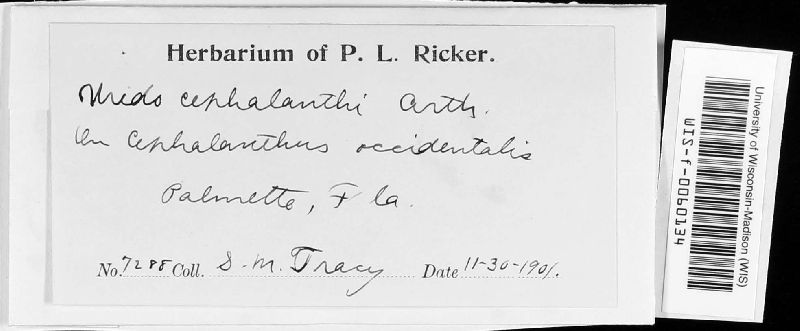 Herbarium of P. L. Ricker.
Uredo cephalanthi Arth.
On Cephalanthus occidentalis
Palmetto, Fla.
No. 7288 Coll. S. M. Tracy Date 11-30-1901.
University of Wisconsin-Madison (WIS)
WIS-f-0060134